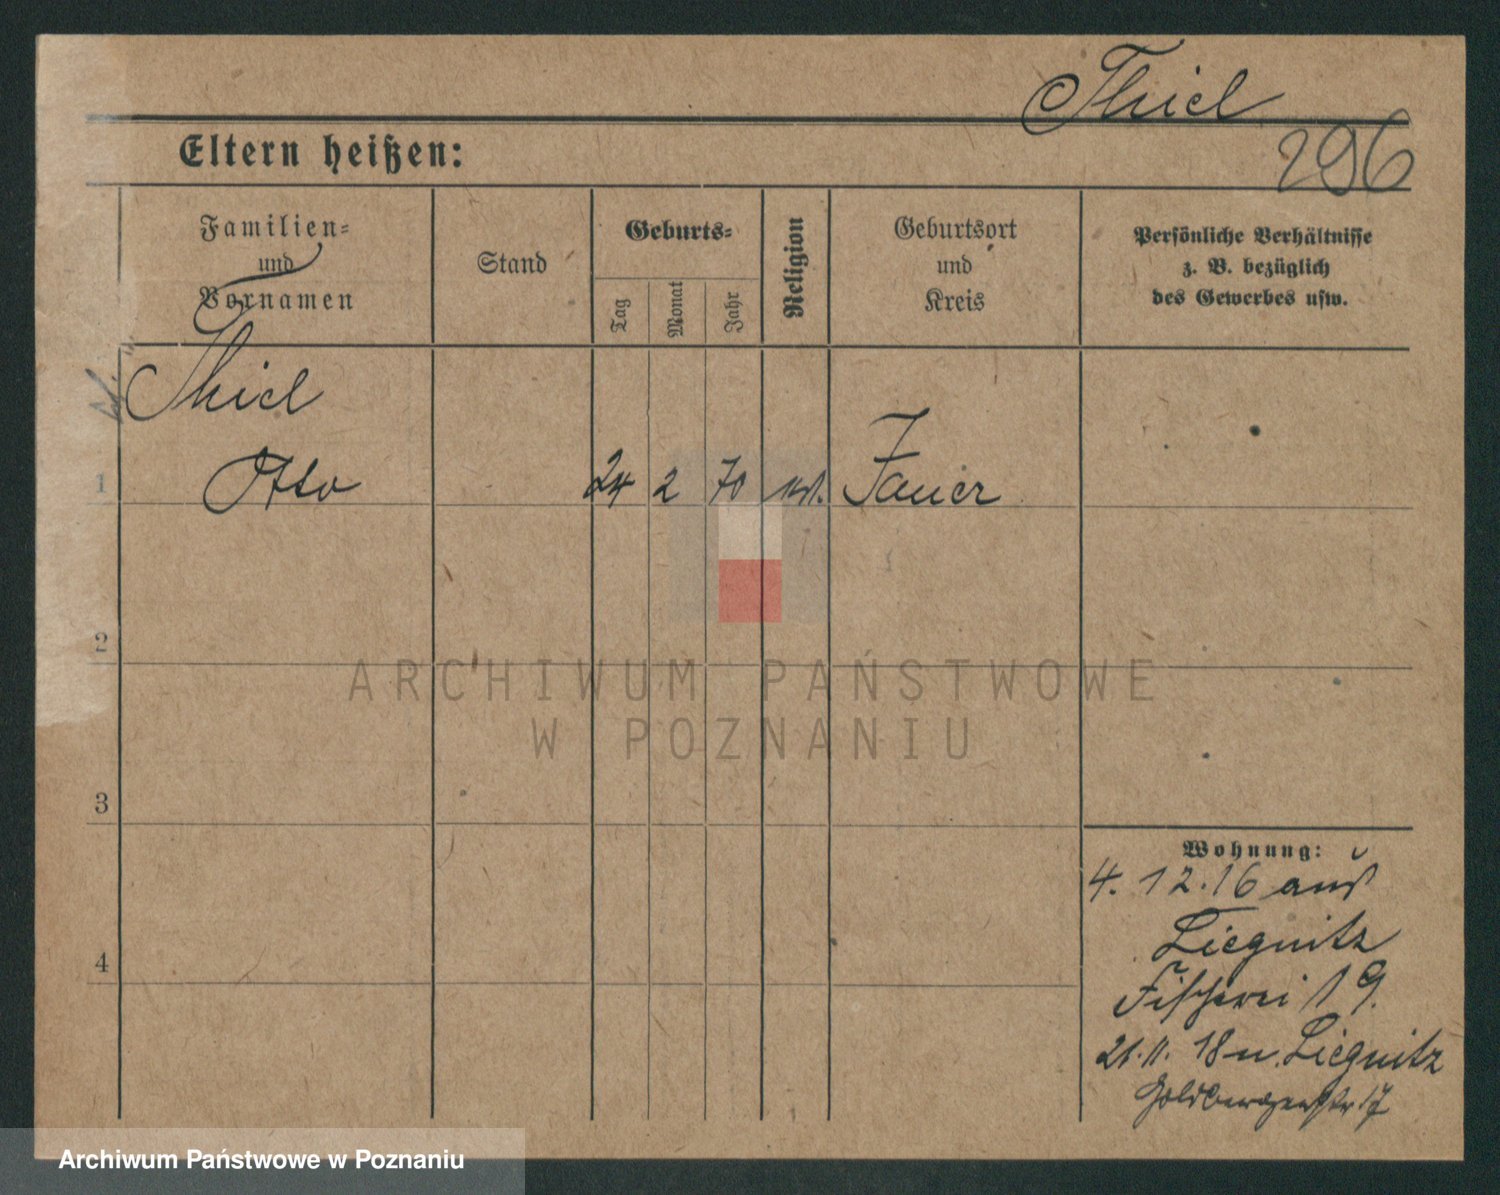 Thiel
296
Eltern heißen:
Familien=
und
Vornamen
Stand
Geburts=
Tag
Monat
Jahr
Religion
Geburtsort
und
Kreis
Persönliche Verhältnisse
z. B. bezüglich
des Gewerbes usw.
Thiel
1 Otto 24 2 70 Jauer
2
3
4
Wohnung:
4. 12. 16 aus
Liegnitz
Fischerei 19.
21. 11. 18 n. Liegnitz
Goldbergerstr 17
ARCHIWUM PAŃSTWOWE
W POZNANIU
Archiwum Państwowe w Poznaniu